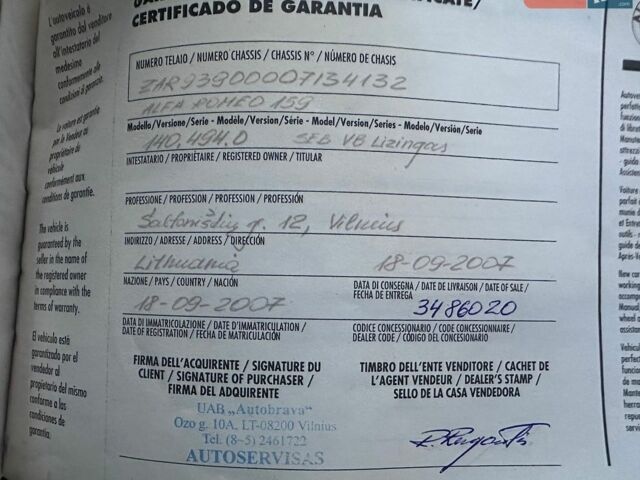 CERTIFICADO DE GARANTIA
L'autoveicolo è
garantito dal venditore
all'intestatario del
medesimo
conformemente alle
condizioni di garanzia.
La voiture est garantie
par le Vendeur au
propriétaire du
véhicule
conformément aux
conditions de garantie.
The vehicle is
guaranteed by the
seller in the name of
the registered owner
in compliance with the
terms of warranty.
El vehículo está
garantizado por el
vendedor al
propietario del mismo
conforme a las
condiciones de
garantía.
NUMERO TELAIO / NUMERO CHASSIS / CHASSIS N° / NÚMERO DE CHASIS
ZAR93900007134132
ALFA ROMEO 159
Modello/Versione/Serie - Modèle/Version/Série - Model/Version/Series - Modelo/Versión/Serie
140.494.0 SEB VB Lizingas
INTESTATARIO / PROPRIÉTAIRE / REGISTERED OWNER / TITULAR
PROFESSIONE / PROFESSION / PROFESSION / PROFESIÓN
Saltoniškių g. 12, Vilnius
INDIRIZZO / ADRESSE / ADDRESS / DIRECCIÓN
Lithuania 18-09-2007
NAZIONE / PAYS / COUNTRY / NACIÓN
DATA DI CONSEGNA / DATE DE LIVRAISON / DATE OF SALE /
FECHA DE ENTREGA
18-09-2007 3486020
DATA DI IMMATRICOLAZIONE / DATE D'IMMATRICULATION /
DATE OF REGISTRATION / FECHA DE MATRICULACIÓN
CODICE CONCESSIONARIO / CODE CONCESSIONNAIRE /
DEALER CODE / CÓDIGO DEL CONCESIONARIO
FIRMA DELL'ACQUIRENTE / SIGNATURE DU
CLIENT / SIGNATURE OF PURCHASER /
FIRMA DEL ADQUIRENTE
TIMBRO DELL'ENTE VENDITORE / CACHET DE
L'AGENT VENDEUR / DEALER'S STAMP /
SELLO DE LA CASA VENDEDORA
UAB „Autobrava"
Ozo g. 10A, LT-08200 Vilnius
Tel. (8-5) 2461722
AUTOSERVISAS